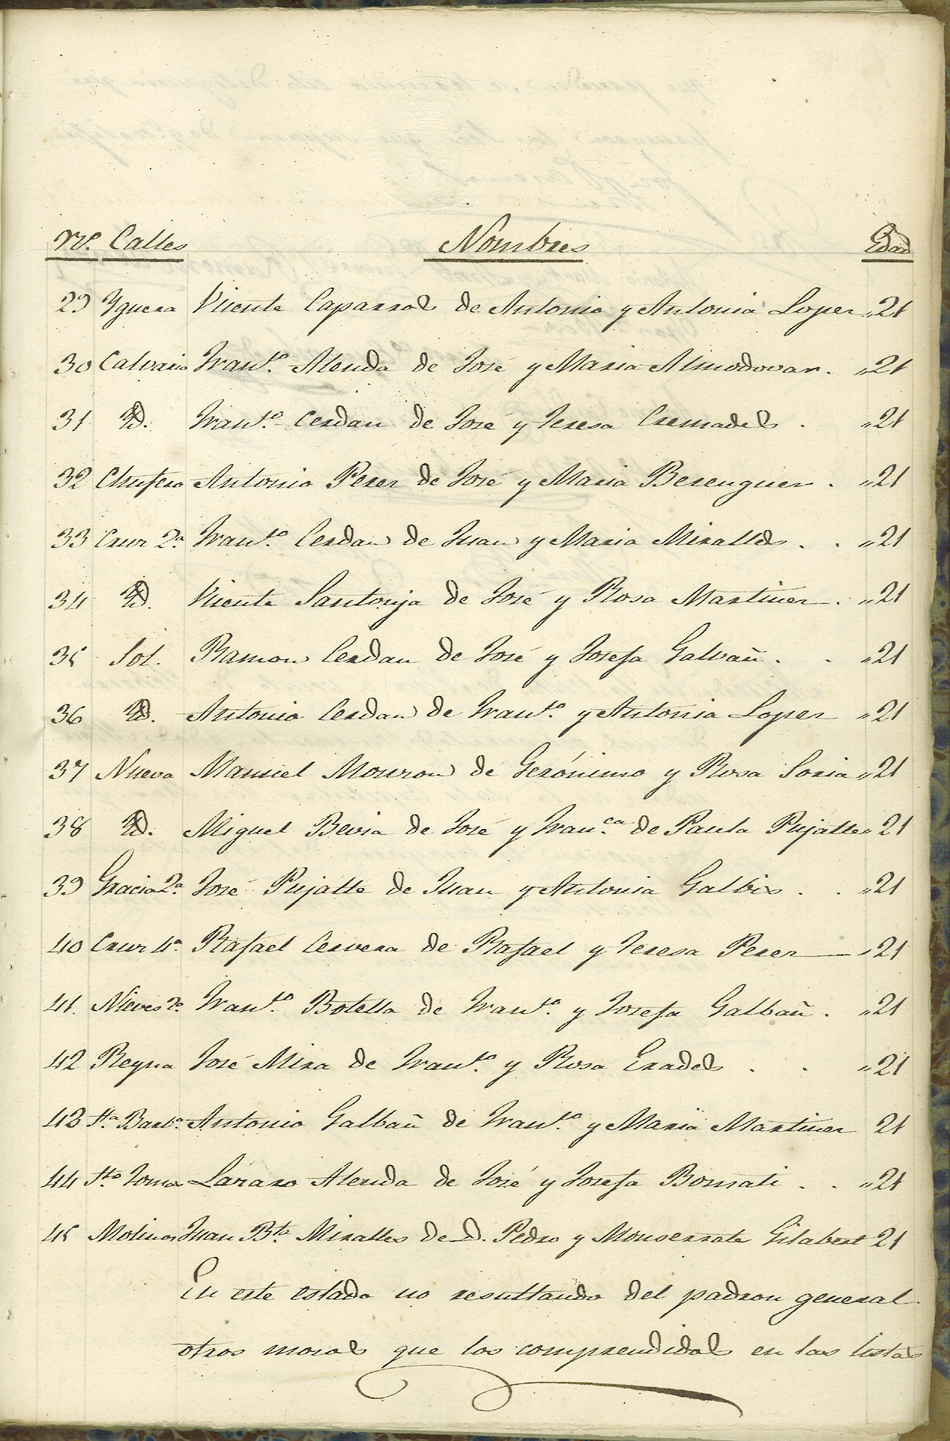 Nº. Calles Nombres Edad
29 Yguera Vicente Caparros de Antonio y Antonia Loper „21
30 Calvario Franco. Alenda de José y Maria Almodovar. „21
31 Yd. Franco. Cerdan de José y Teresa Cremades. „21
32 Chufero Antonio Perez de José y Maria Berenguer. „21
33 Cruz 2ª Franco. Cerdan de Juan y Maria Miralles. . „21
34 Yd. Vicente Santonja de José y Rosa Martinez. „21
35 Sol. Ramon Cerdan de José y Josefa Galvañ. . „21
36 Yd. Antonio Cerdan de Franco. y Antonia Loper „21
37 Nueva Manuel Monzon de Gerónimo y Rosa Soria „21
38 Yd. Miguel Bevia de José y Franca. de Paula Pujalte „21
39 Gracia 2ª José Pujalte de Juan y Antonia Galbis. . „21
40 Cruz 4ª Rafael Cervera de Rafael y Teresa Perez „21
41. Nieves 2ª Franco. Botella de Franco. y Josefa Galbañ. „21
42 Reyna José Mira de Franco. y Rosa Erades . . „21
43 Sta. Barba. Antonio Galbañ de Franco. y Maria Martinez 21
44 Sto. Toma Lázaro Alenda de José y Josefa Bornati . . „21
45 Molinos Juan Bta. Miralles de D. Pedro y Monserrate Gilabert 21
En este estado no resultando del padron general
otros mozos que los comprendidos en las listas